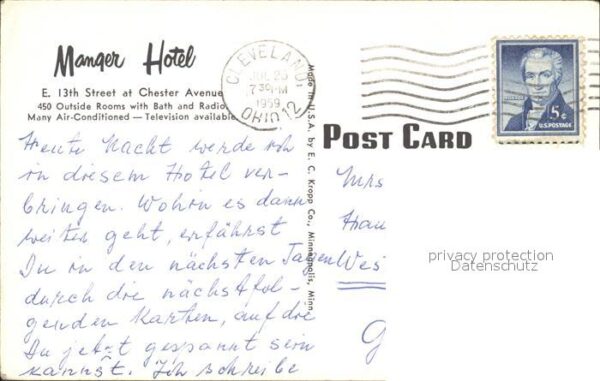 Manger Hotel
E. 13th Street at Chester Avenue
450 Outside Rooms with Bath and Radio
Many Air-Conditioned — Television available
CLEVELAND
JUL 20
7 30 PM
1959
OHIO 12
5¢
U.S. POSTAGE
Made in U.S.A. by E. C. Kropp Co., Minneapolis, Minn.
POST CARD
Heute Nacht werde ich
in diesem Hotel ver-
bringen. Wohin es dann
weiter geht, erfährst
Du in den nächsten Tagen
durch die nächstfol-
genden Karten, auf die
Du jetzt gespannt sein
kannst. Ich schreibe
Mrs
Hau
Wes
G
privacy protection
Datenschutz